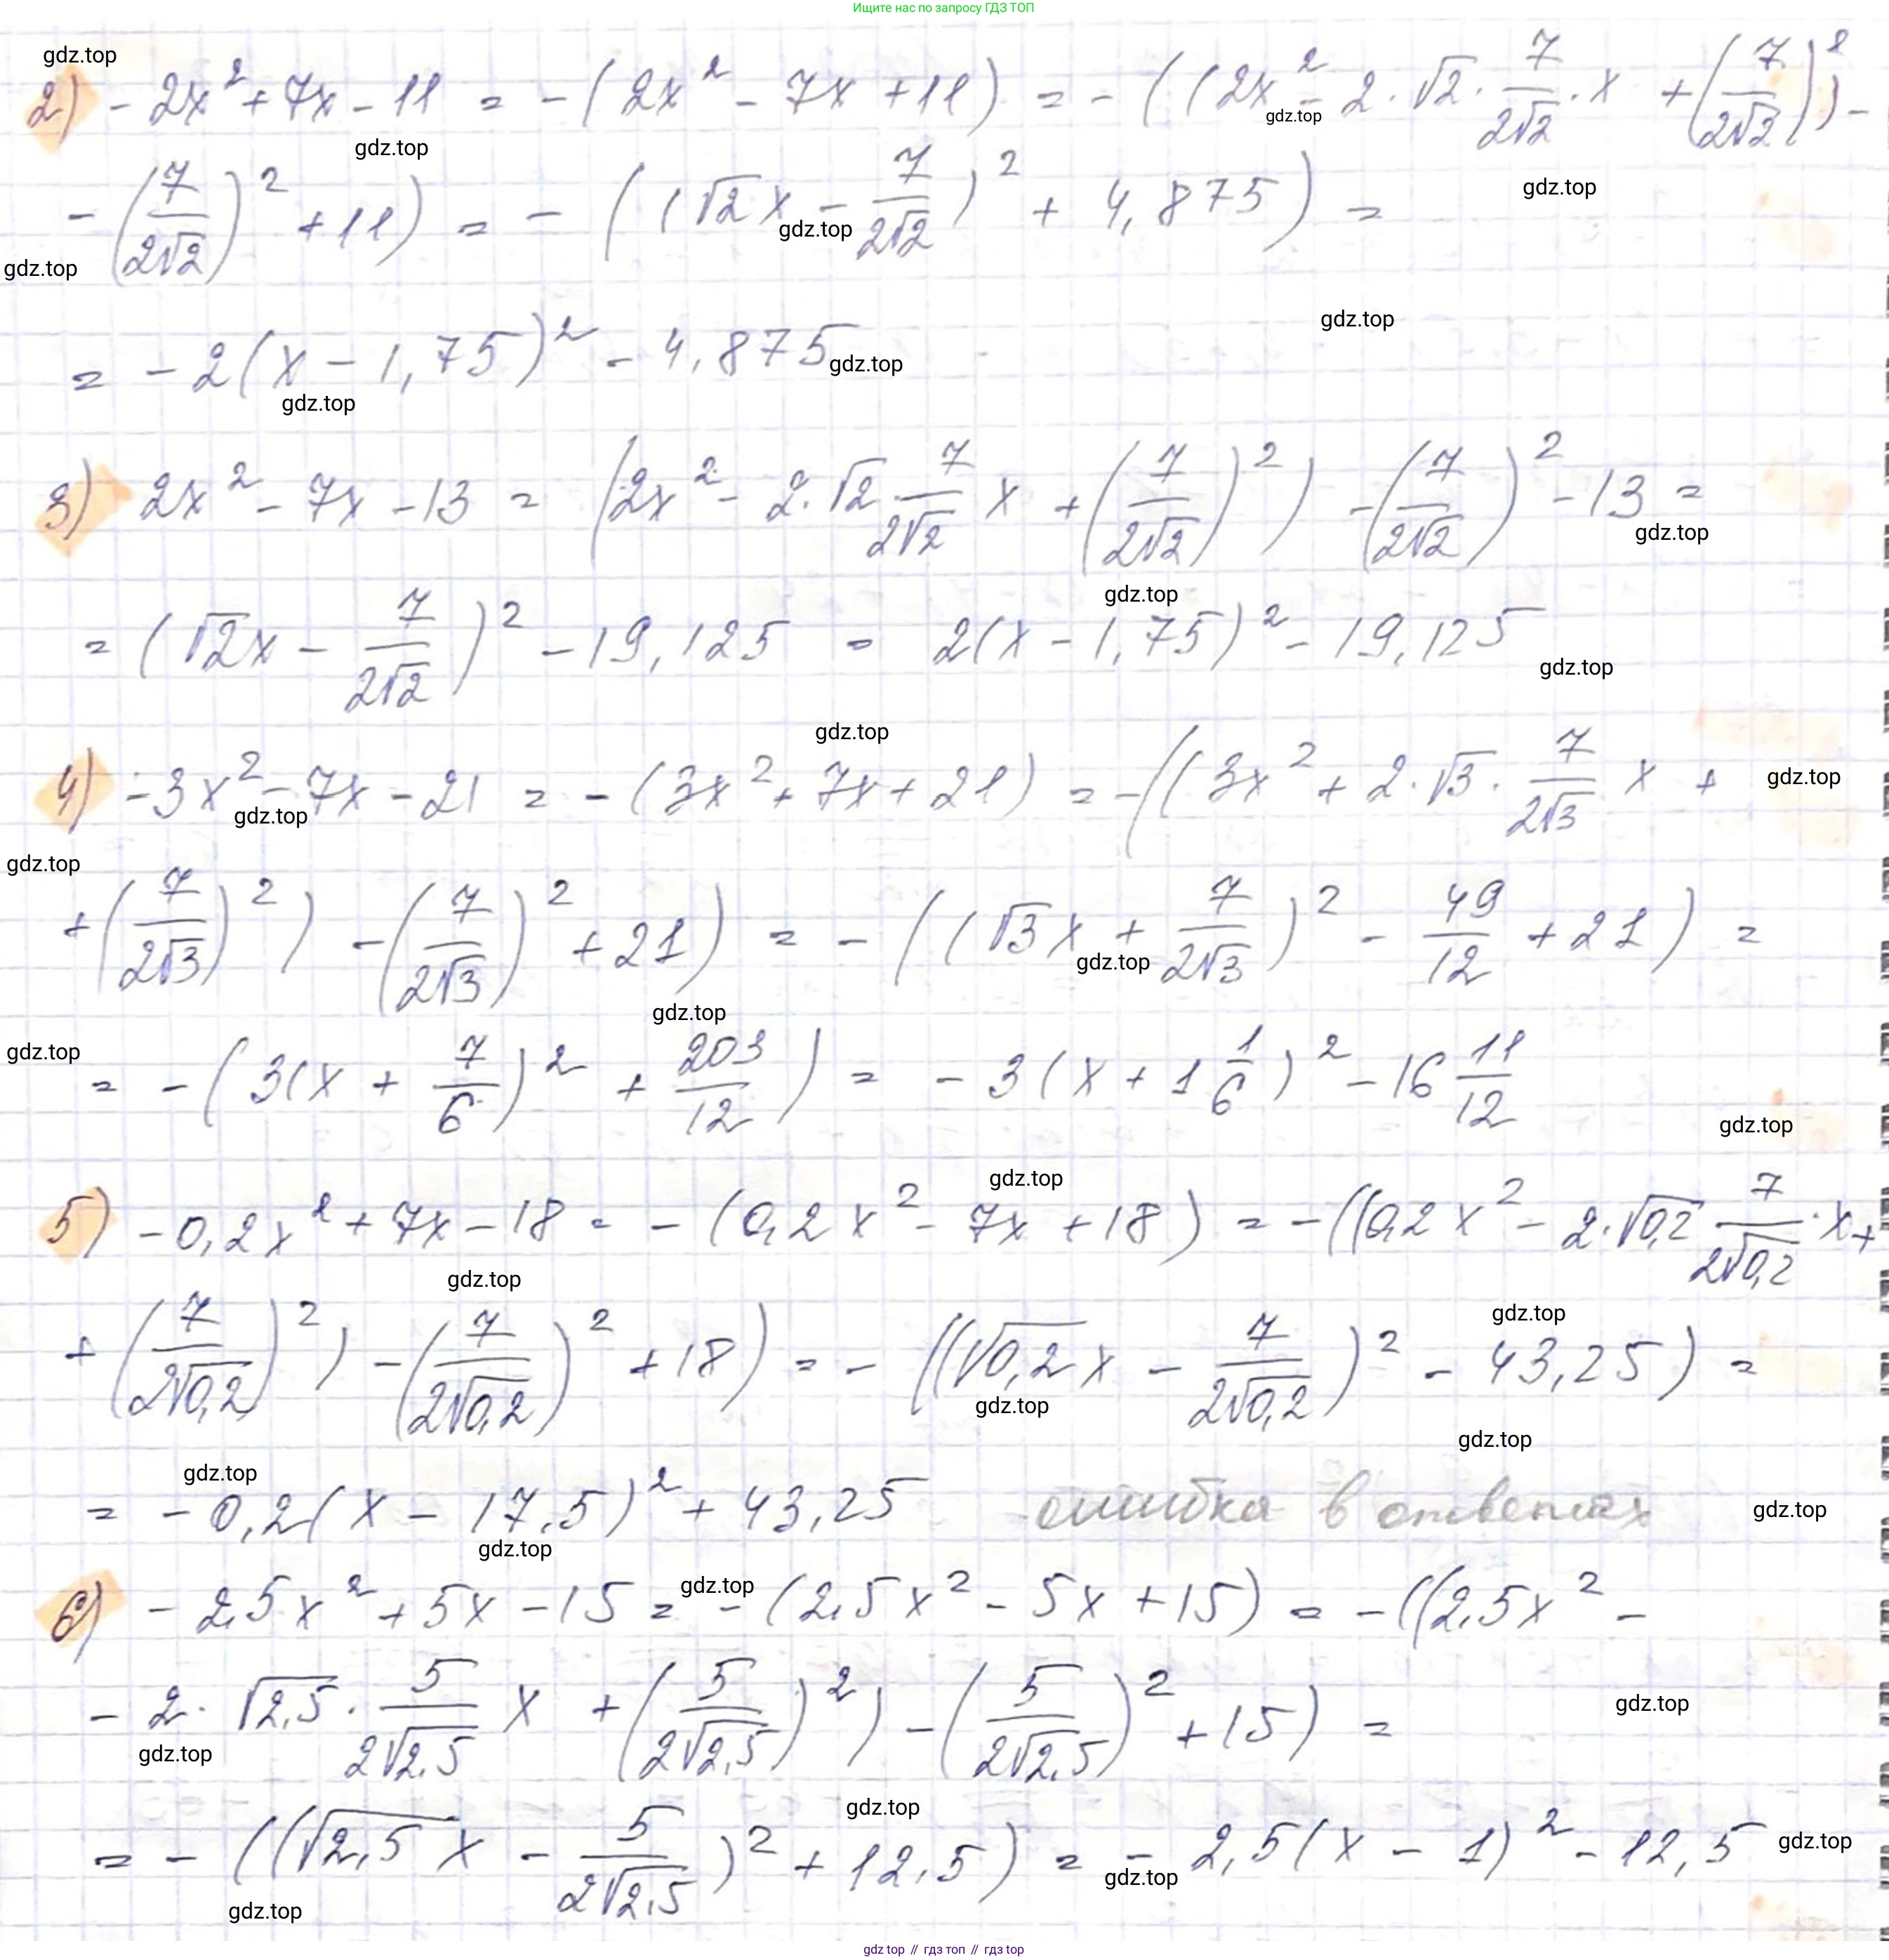 Ищите нас по запросу ГДЗ ТОП
gdz.top
2) - 2x² + 7x - 11 = - (2x² - 7x + 11) = - ((2x² - 2 · √2 · 7/(2√2) · x + (7/(2√2))²) -
gdz.top
gdz.top
gdz.top
- (7/(2√2))² + 11) = - ((√2x - 7/(2√2))² + 4,875) =
gdz.top
gdz.top
gdz.top
= - 2(x - 1,75)² - 4,875
gdz.top
gdz.top
3) 2x² - 7x - 13 = (2x² - 2 · √2 · 7/(2√2) x + (7/(2√2))²) - (7/(2√2))² - 13 =
gdz.top
gdz.top
= (√2x - 7/(2√2))² - 19,125 = 2(x - 1,75)² - 19,125
gdz.top
gdz.top
4) - 3x² - 7x - 21 = - (3x² + 7x + 21) = - ((3x² + 2 · √3 · 7/(2√3) x +
gdz.top
gdz.top
gdz.top
+ (7/(2√3))²) - (7/(2√3))² + 21) = - ((√3x + 7/(2√3))² - 49/12 + 21) =
gdz.top
gdz.top
gdz.top
= - (3(x + 7/6)² + 203/12) = - 3(x + 1 1/6)² - 16 11/12
gdz.top
gdz.top
5) - 0,2x² + 7x - 18 = - (0,2x² - 7x + 18) = - ((0,2x² - 2 · √0,2 7/(2√0,2) · x +
gdz.top
gdz.top
+ (7/(2√0,2))²) - (7/(2√0,2))² + 18) = - ((√0,2x - 7/(2√0,2))² - 43,25) =
gdz.top
gdz.top
gdz.top
= - 0,2(x - 17,5)² + 43,25 ошибка в ответах
gdz.top
gdz.top
gdz.top
6) - 2,5x² + 5x - 15 = - (2,5x² - 5x + 15) = - ((2,5x² -
- 2 · √2,5 · 5/(2√2,5) x + (5/(2√2,5))²) - (5/(2√2,5))² + 15) =
gdz.top
gdz.top
gdz.top
= - ((√2,5 x - 5/(2√2,5))² + 12,5) = - 2,5(x - 1)² - 12,5
gdz.top
gdz.top
gdz.top
gdz top // гдз топ // gdz top